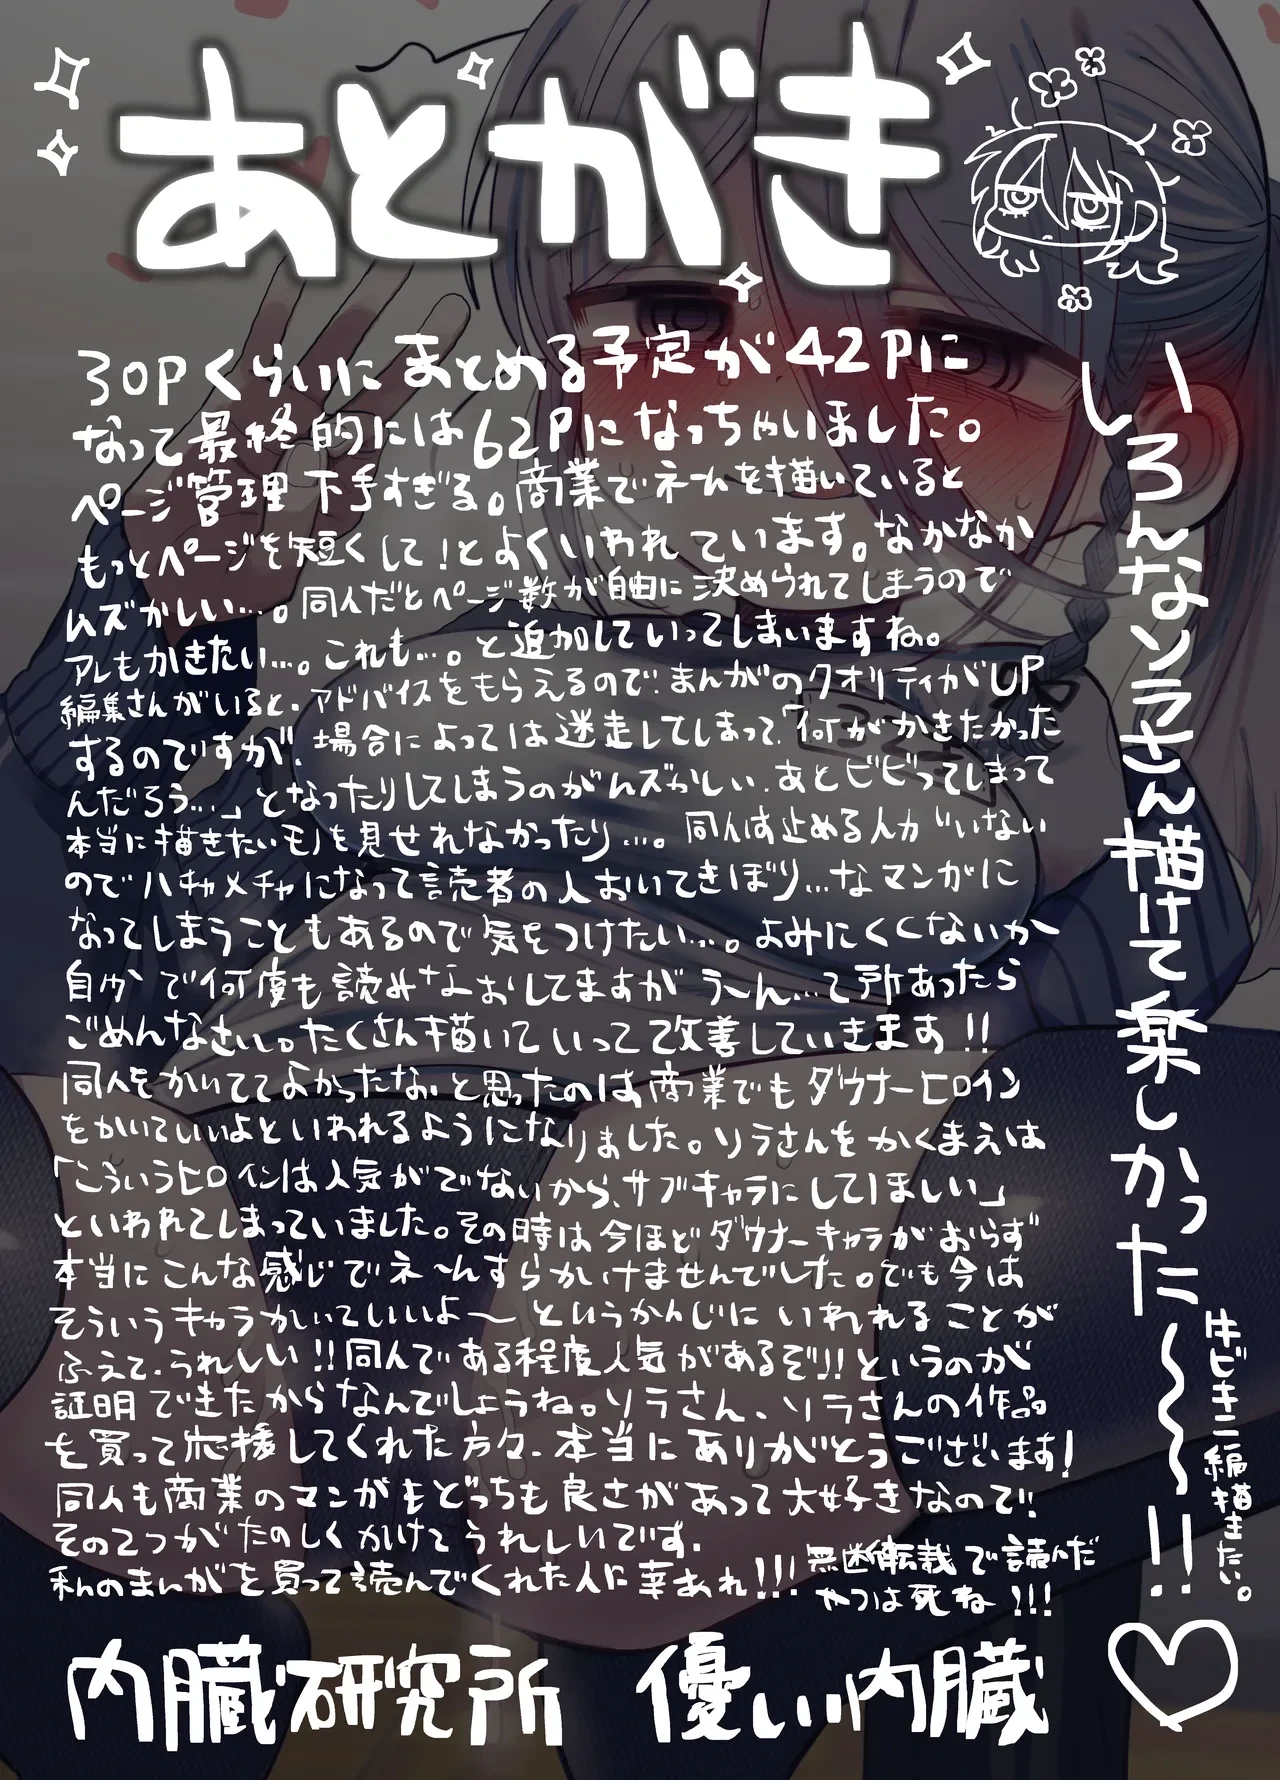 あとがき
30Pくらいにまとめる予定が42Pに
なって最終的には62Pになっちゃいました。
ページ管理下手すぎる。商業でネームを描いていると
もっとページを短くして!とよくいわれています。なかなか
ムズかしい…。同人だとページ数が自由に決められてしまうので
アレもかきたい…。これも…。と追加していってしまいますね。
編集さんがいると、アドバイスをもらえるので、まんがのクオリティがUP
するのですが、場合によっては迷走してしまって、「何がかきたかった
んだろう…」となったりしてしまうのがムズかしい、あとビビってしまって
本当に描きたいモノを見せれなかったり…。同人は止める人がいない
のでハチャメチャになって読者の人おいてきぼり…なマンガに
なってしまうこともあるので気をつけたい…。よみにくくないか
自分で何度も読みなおしてますがう〜ん…て所あったら
ごめんなさい。たくさん描いていって改善していきます!!
同人をかいててよかったな、と思ったのは商業でもダウナーヒロイン
をかいていいよといわれるようになりました。ソラさんをかくまえは
「こういうヒロインは人気がでないから、サブキャラにしてほしい」
といわれてしまっていました。その時は今ほどダウナーキャラがおらず
本当にこんな感じでネ〜んすらかいけませんでした。でも今は
そういうキャラかいていいよ〜というかんじにいわれることが
ふえて、うれしい!!同人である程度人気があるぞ!!というのが
証明できたからなんでしょうね。ソラさん、ソラさんの作品
を買って応援してくれた方々、本当にありがとうございます!
同人も商業のマンガもどっちも良さがあって大好きなので!!
そのてつがたのしくかけてうれしいです。
私のまんがを買って読んでくれた人に幸あれ!!!
無断転載で読んだ
やつは死ね!!!
いろんなソラさん描けて楽しかった〜!!♡
牛ビキニ編描きたい。
内臓研究所 優しい内臓